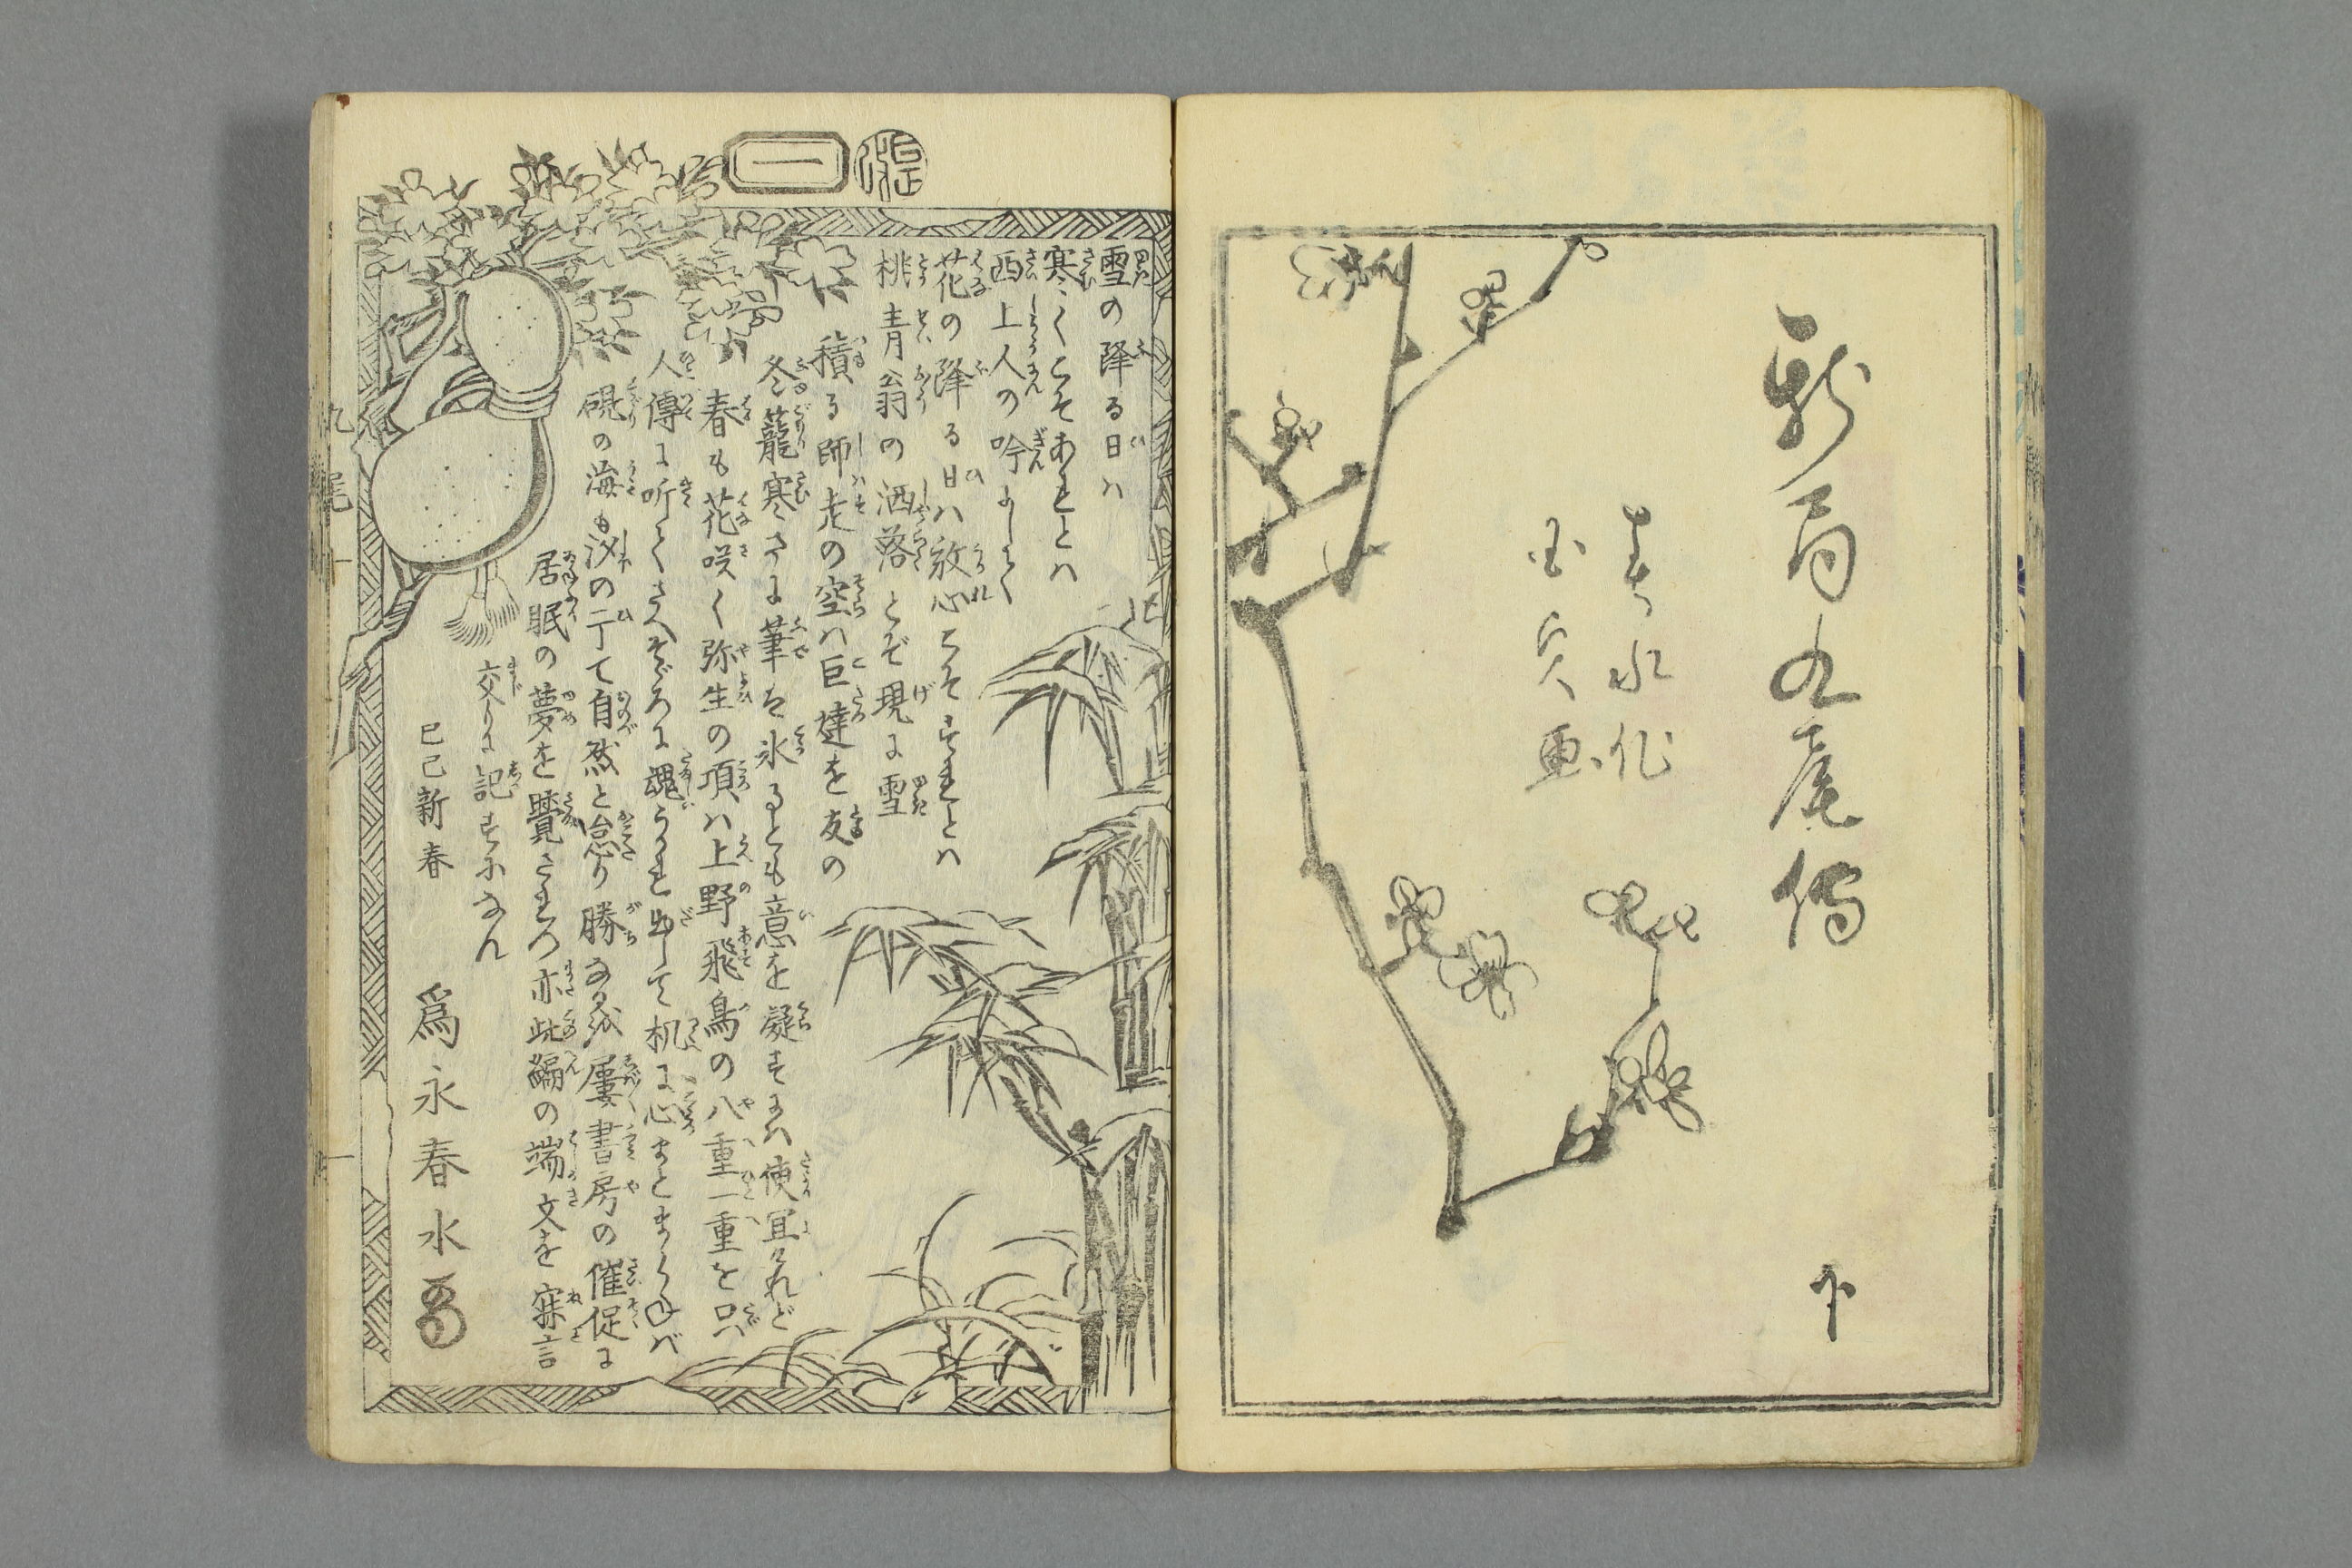 新局九尾傳
春水作
国貞画
下
一
雪の降る日ハ
寒くこそあれとハ
西上人の吟にして
花の降る日ハ放心こそすれとハ
桃青翁の洒落とぞ現に雪
積る師走の空ハ巨燵を友の
冬籠寒さに筆は氷るとも意を凝すにハ使宜けれど
春も花咲く弥生の頃ハ上野飛鳥の八重一重を只
人傳に听くさへそぞろに魂うかれ出して机に心まとまらねバ
硯の海も汐の干て自然と怠り勝なる武屡書房の催促に
居眠の夢を覺されつつ亦此編の端文を寐言
交りに記すになん
巳己新春
爲永春水
九尾
一